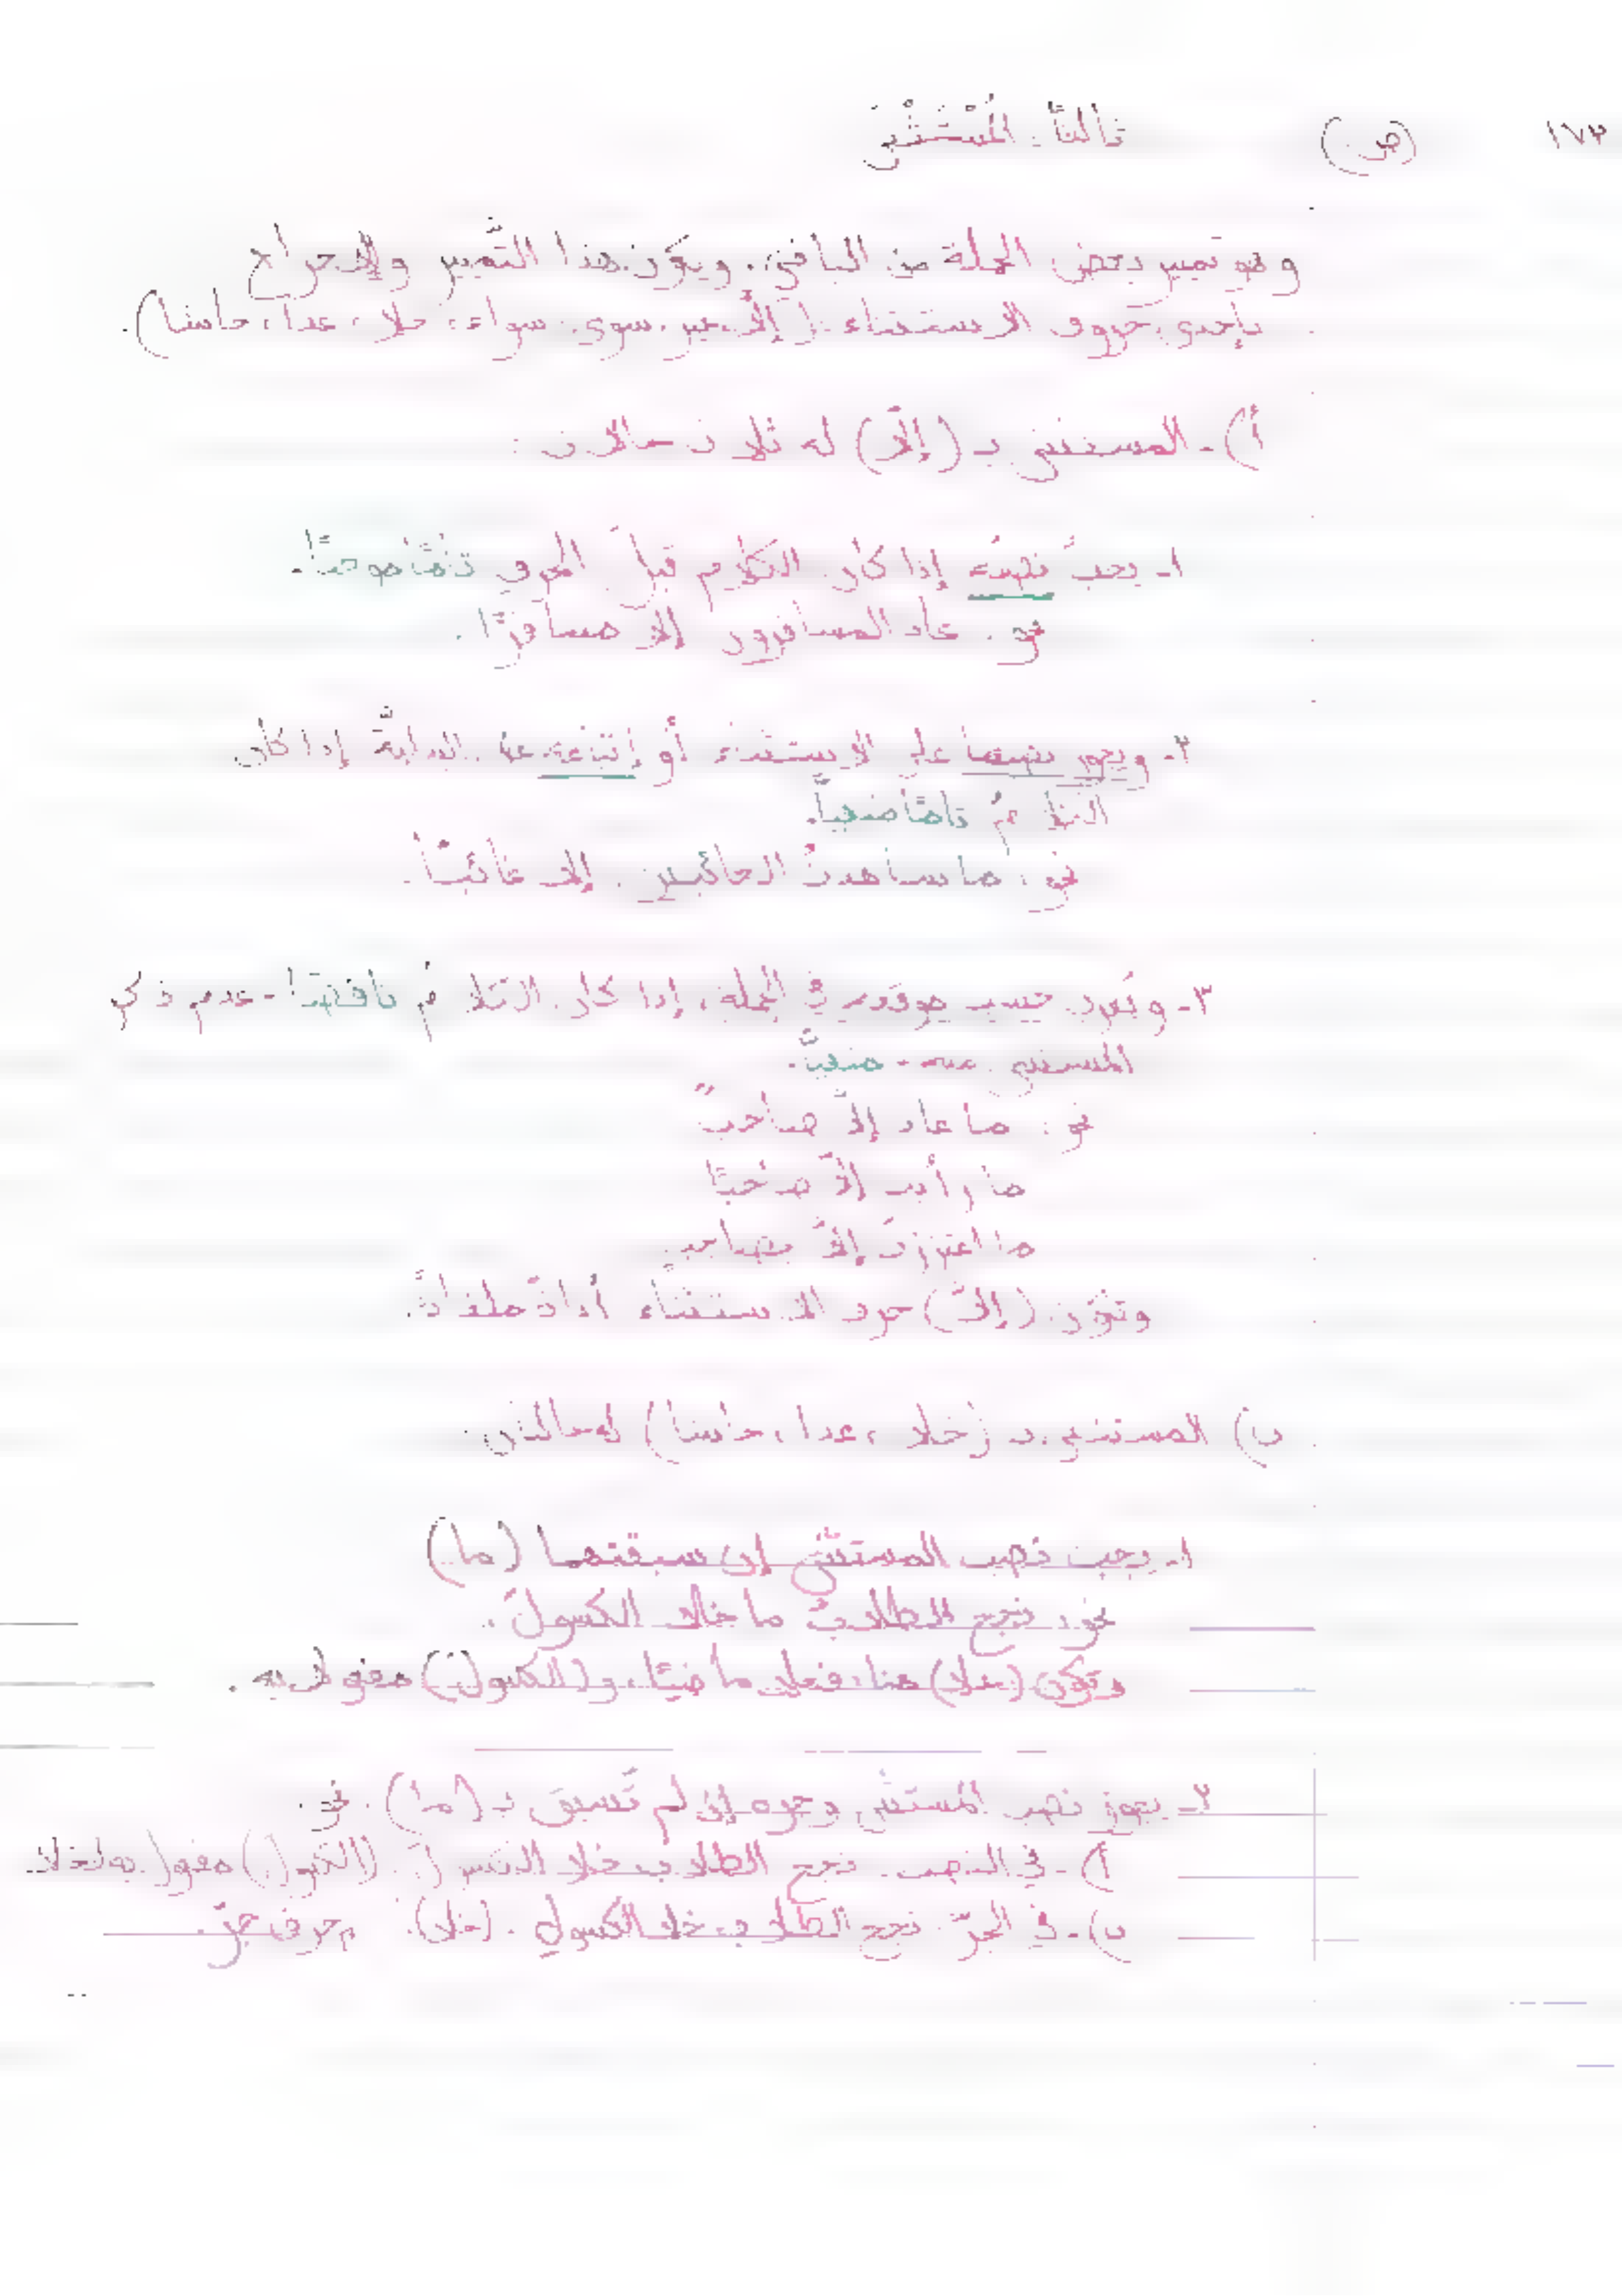 ١٧٣ (ص) ثالثاً: المُسْتَثْنى
وهو تمييز بعض الجملة من الباقي، ويكون هذا التمييز والإخراج
بإحدى حروف الاستثناء (إلّا، غير، سوى، سواء، خلا، عدا، حاشا).
أ)- المستثنى بـ (إلّا) له ثلاث حالات:
١- يجبُ نصبُه إذا كان الكلام قبلَ الحرف تامًّا موجبًا.
نحو: عاد المسافرون إلا مسافرًا.
٢- ويجوز نصبها على الاستثناء أو إتباعه على البدليّة إذا كان
الكلامُ تامًّا منفيّاً.
نحو: ما شاهدتُ الغائبين إلا غائبًا.
٣- ويُعرب حسب موقعه في الجملة، إذا كان الكلامُ ناقصًا - عدم ذكر
المستثنى منه - منفيّاً.
نحو: ما عاد إلّا صاحبٌ
ما رأيت إلّا صاحبًا
ما اعتززتُ إلّا بصاحبٍ
وتكون (إلّا) حرف الاستثناء أداةً ملغاةً.
ب) المستثنى بـ (خلا، عدا، حاشا) له حالتان:
١- يجب نصب المستثنى إن سبقتها (ما)
نحو: نجح الطلابُ ما خلا الكسولَ.
وتكون (خلا) هنا فعلاً ماضيًا، و(الكسولَ) مفعولا به.
٢- يجوز نصب المستثنى وجره إن لم تُسبق بـ (ما). نحو:
أ)- في النصب: نجح الطلاب خلا الكسولَ. (الكسولَ) مفعول به لخلا
ب)- في الجرّ: نجح الطلاب خلا الكسولِ. (خلا) حرف جرّ.